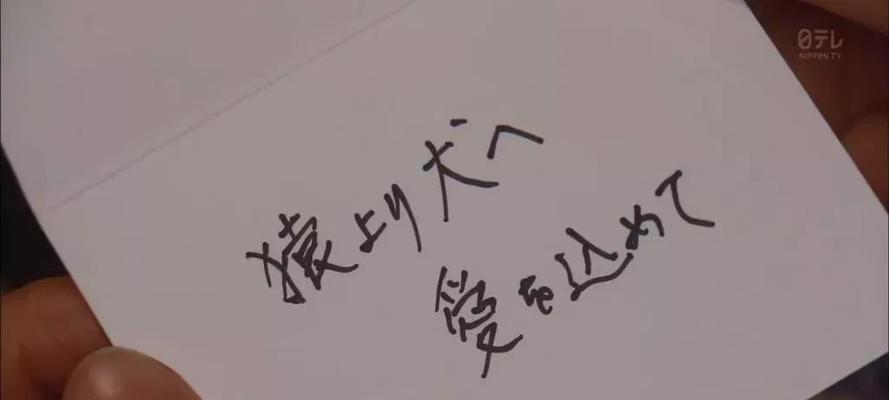 猿より犬へ
愛を込めて
日テレ
NIPPON TV